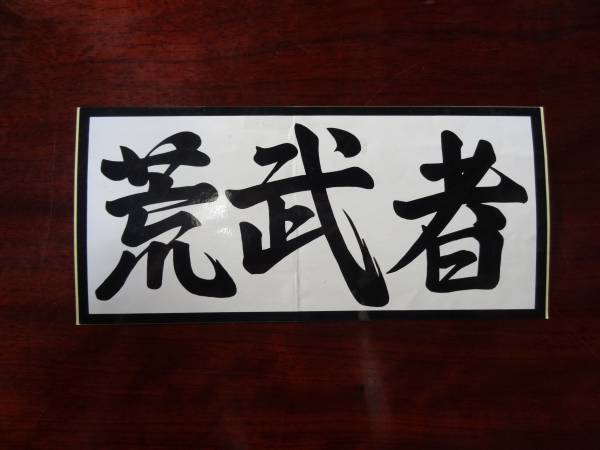 荒武者